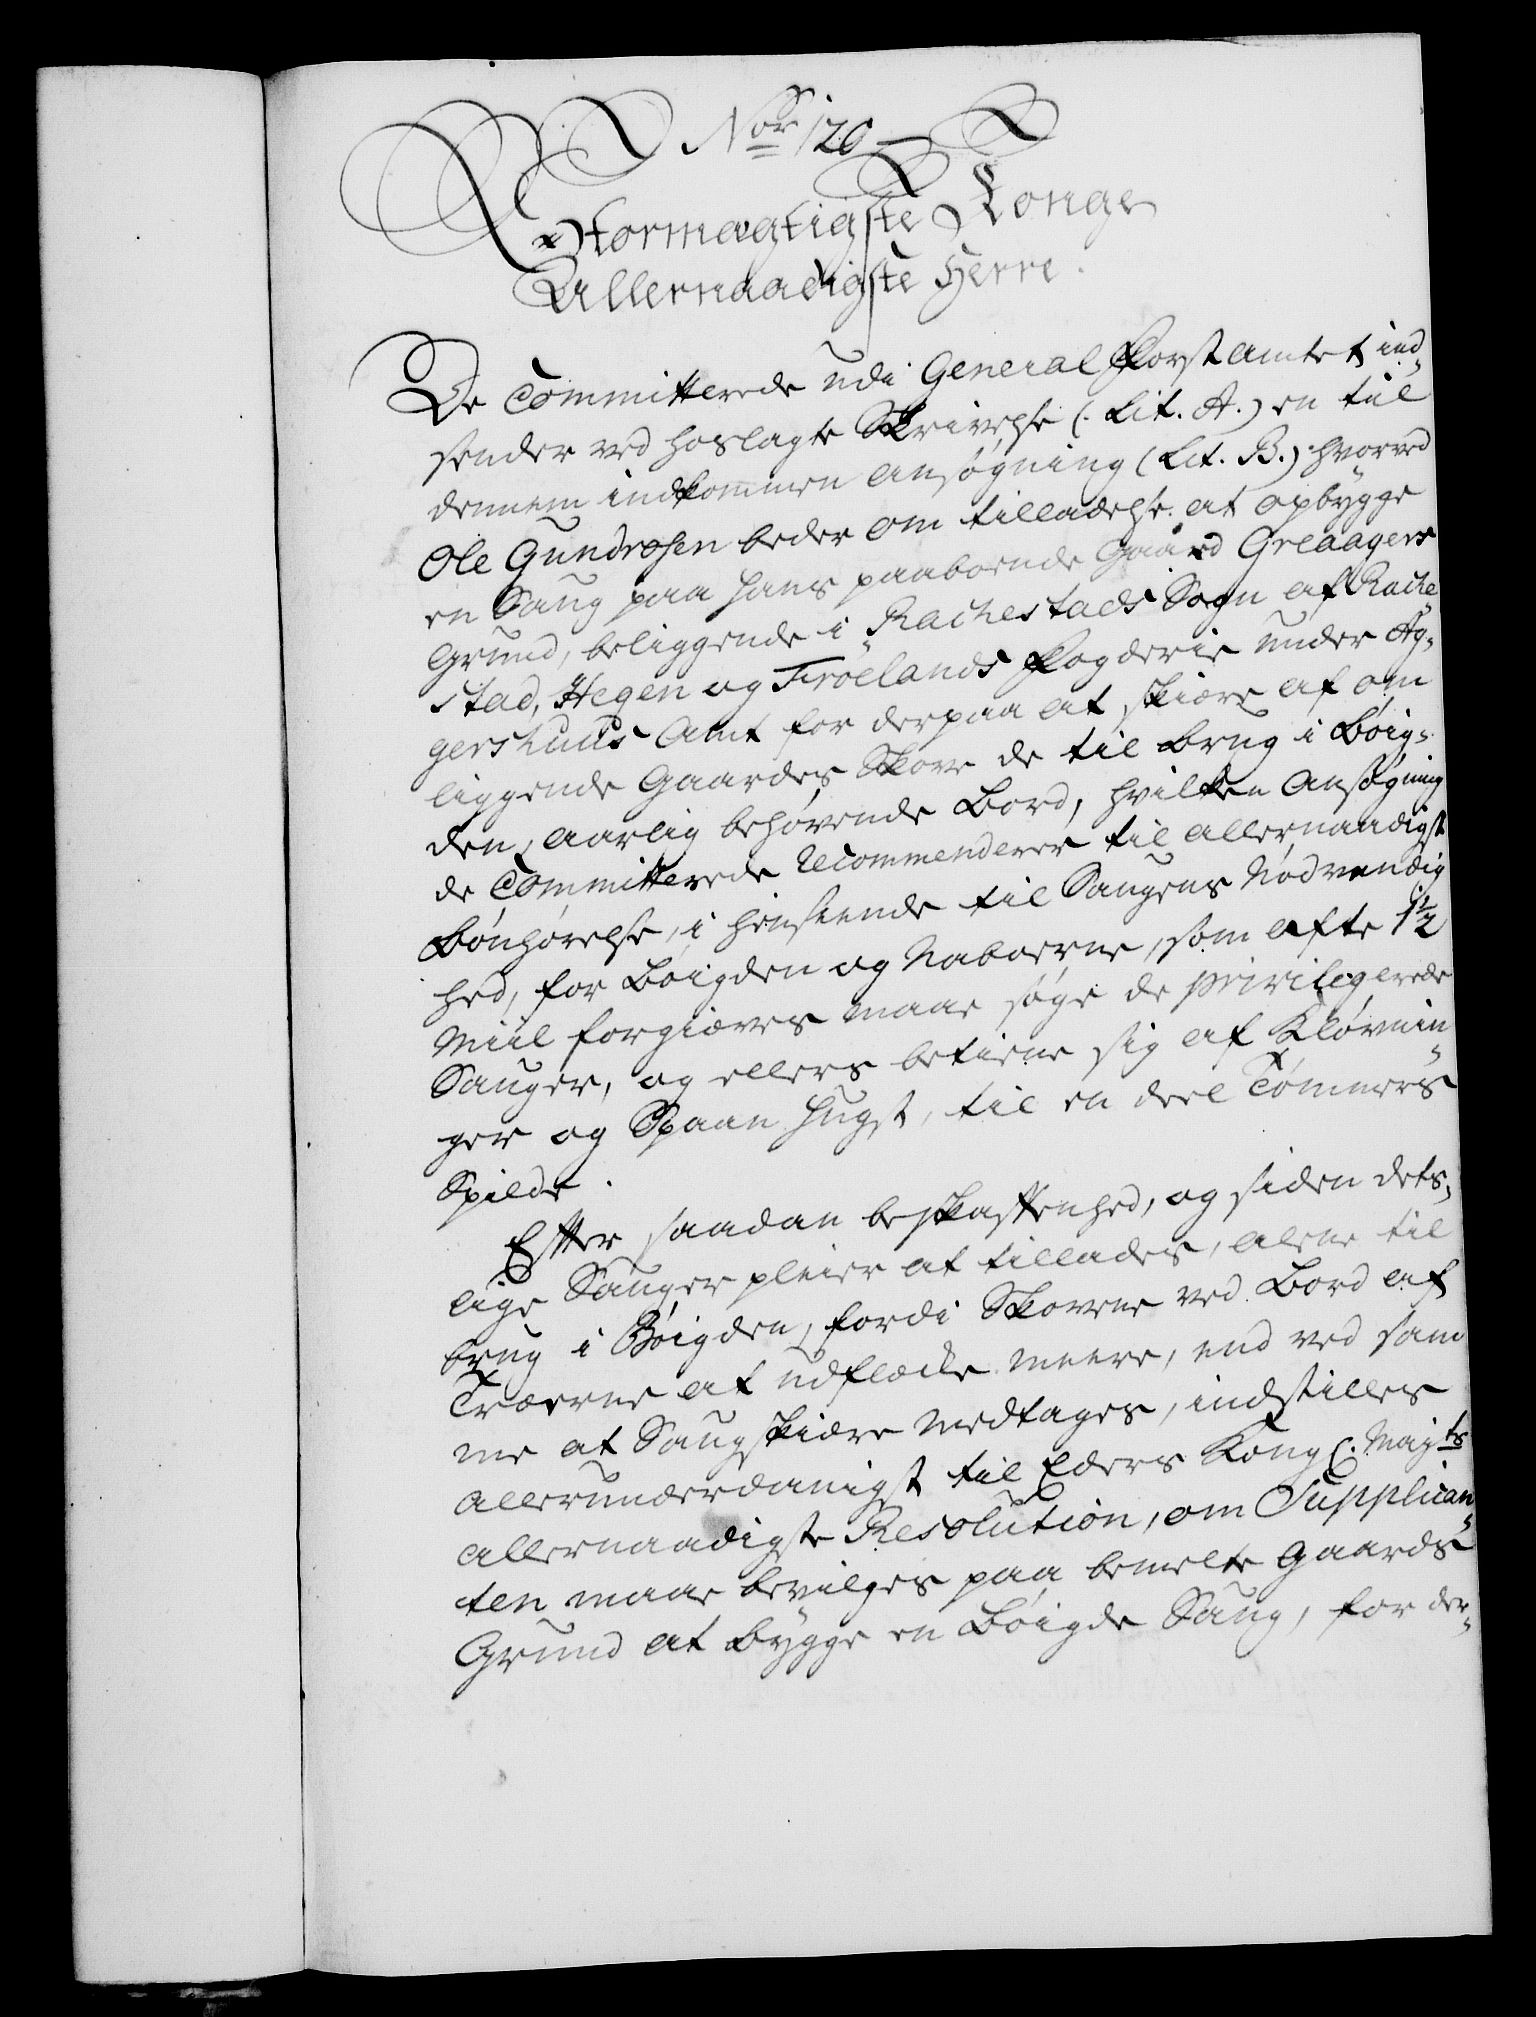 Nor 126
Stormægtigste Konge
Allernaadigste Herre.
De Committerede udi General Forstamtet ind-
sender ved hoslagte Skrivelse (: Lit. A.) en til
dennem indkommen Ansøgning (Lit. B.) hvorved
Ole Gundersen beder om tilladelse at opbygge
en Saug paa hans paaboende Gaard Greaagers
Grund, beliggende i Rachestads Sogn af Rache-
stad, Hegen og Froelands Fogderie under Ag-
gershuus Amt for derpaa at skiære af om-
liggende Gaardes Skove de til brug i Bøig-
den, aarlig behøvende Bord, hvilken Ansøgning
de Committerede recommenderer til allernaadigst
Bønhørelse, i henseende til Saugens Nødvendig
hed, for Bøigden og Naboerne, som ofte 1½
Miil forgiæves maae søge de privilegerede
Sauger, og ellers betiene sig af Kløvnin-
ger og Spaan hugst, til en deel Tømmers
Spilde.
Efter saadan beskaffenhed, og siden dets-
lige Sauger pleier at tillades, alene til
brug i Bøigden, fordi Skovene ved Bord af
Træerne at udflecke meere, end ved sam-
me at Saugskiære medtages, indstilles
allerunderdanigst til Eders Kongl. Mayts
allernaadigste Resolution, om Supplican-
ten maae bevilges paa bemelte Gaards
Grund at bygge en Bøigde Saug, for der-